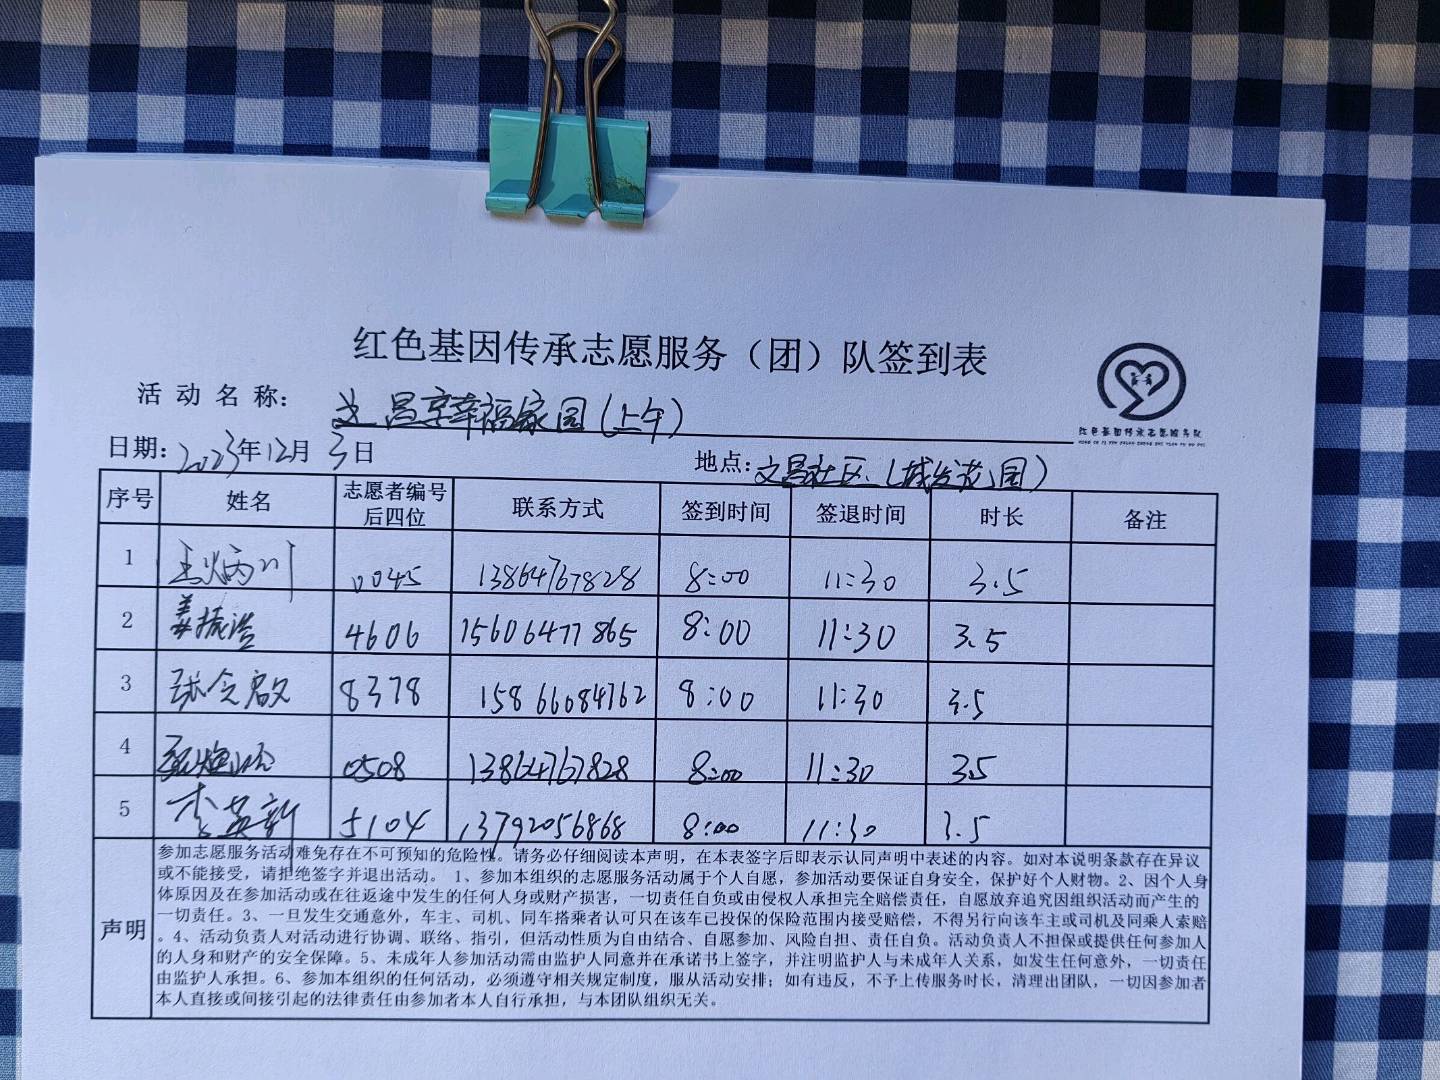 红色基因传承志愿服务（团）队签到表
活动名称： 文昌京幸福家园(上午)
日期：2023年12月3日
地点：文昌社区(城发花园)
红色基因传承志愿服务队
序号 姓名 志愿者编号后四位 联系方式 签到时间 签退时间 时长 备注
1 王炳川 0045 13864767828 8:00 11:30 3.5
2 姜振滋 4606 15606477865 8:00 11:30 3.5
3 张念启 8378 15866084762 8:00 11:30 3.5
4 0508 13864767828 8:00 11:30 3.5
5 李英新 5104 13792056868 8:00 11:30 3.5
声明
参加志愿服务活动难免存在不可预知的危险性。请务必仔细阅读本声明，在本表签字后即表示认同声明中表述的内容。如对本说明条款存在异议
或不能接受，请拒绝签字并退出活动。 1、参加本组织的志愿服务活动属于个人自愿，参加活动要保证自身安全，保护好个人财物。2、因个人身
体原因及在参加活动或在往返途中发生的任何人身或财产损害，一切责任自负或由侵权人承担完全赔偿责任，自愿放弃追究因组织活动而产生的
一切责任。3、一旦发生交通意外，车主、司机、同车搭乘者认可只在该车已投保的保险范围内接受赔偿，不得另行向该车主或司机及同乘人索赔
。4、活动负责人对活动进行协调、联络、指引，但活动性质为自由结合、自愿参加、风险自担、责任自负。活动负责人不担保或提供任何参加人
的人身和财产的安全保障。5、未成年人参加活动需由监护人同意并在承诺书上签字，并注明监护人与未成年人关系，如发生任何意外，一切责任
由监护人承担。6、参加本组织的任何活动，必须遵守相关规定制度，服从活动安排；如有违反，不予上传服务时长，清理出团队，一切因参加者
本人直接或间接引起的法律责任由参加者本人自行承担，与本团队组织无关。